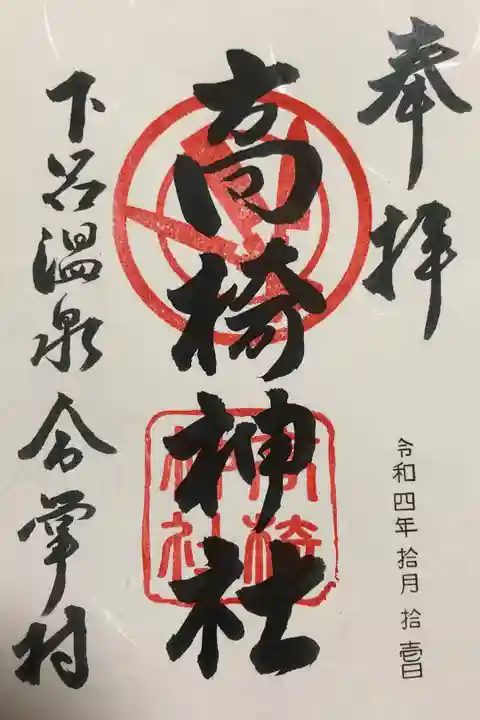 奉拝
令和四年 拾月 拾壱日
高椅神社
高椅
神社
下呂温泉 合掌村